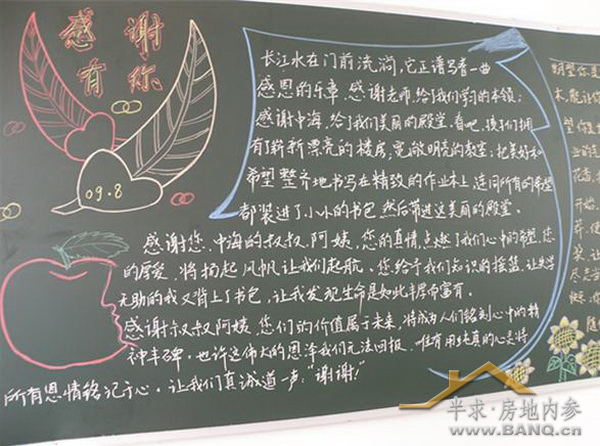 感谢
有你
09.8
长江水在门前流淌,它正谱写着一曲
感恩的乐章.感谢老师,给了我们学习的本领;
感谢中海,给了我们美丽的殿堂.看吧,孩子们拥
有了崭新漂亮的楼房,宽敞明亮的教室;把美好和
希望整齐地书写在精致的作业本上,连同所有的希望
都装进了小小的书包,然后带进这美丽的殿堂。
感谢您,中海的叔叔阿姨,您的真情,点燃了我们心中的希望,您
的厚爱,将扬起风帆让我们起航、您给予我们知识的摇篮,让失学
无助的我又背上了书包,让我发现生命是如此丰厚而富有.
感谢叔叔阿姨,您们的价值属于未来,将成为人们铭刻心中的精
神丰碑,也许这伟大的恩泽我们无法回报,唯有用纯真的心灵将
所有恩情铭记于心,让我们真诚道一声:"谢谢!"
期望你是
木,能让你
望你
业的
花香,
开始,
莽,便
笑,让
尽志
快乐,你
随
半求·房地内参
www.BANQ.cn